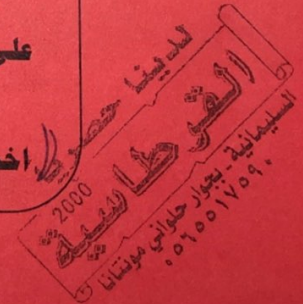 على
اخ
لدينا حصرياً
القرطاسية
2000
السليمانية - بجوار حلواني مونتانا
٠٥٦٥٥١٧٥٩٠